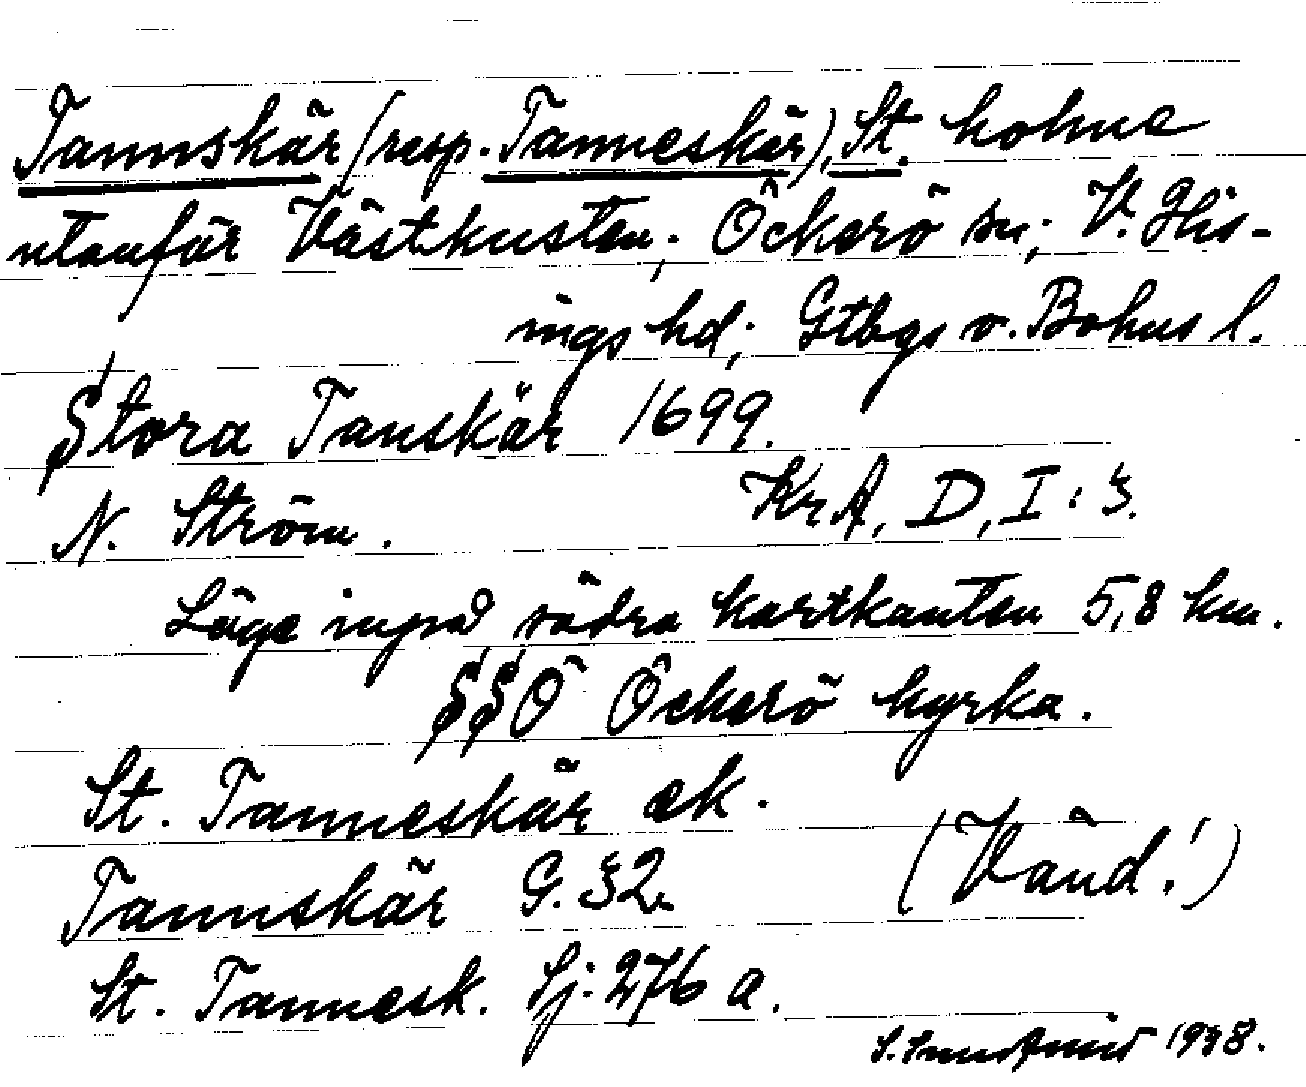 Tannskär (resp. Tanneskär), St. holme
utanför Västkusten; Öckerö sn; V. His-
ings hd; Gtbgs o. Bohus l.
Stora Tanskär 1699.
N. Ström. KrA, D, I: 3.
Läge inpå södra kartkanten 5,8 km.
SSÖ Öckerö kyrka.
St. Tanneskär ek.
Tannskär G. 32. (Vänd!)
St. Tannesk. Sj. 276 a.
S. 1938.